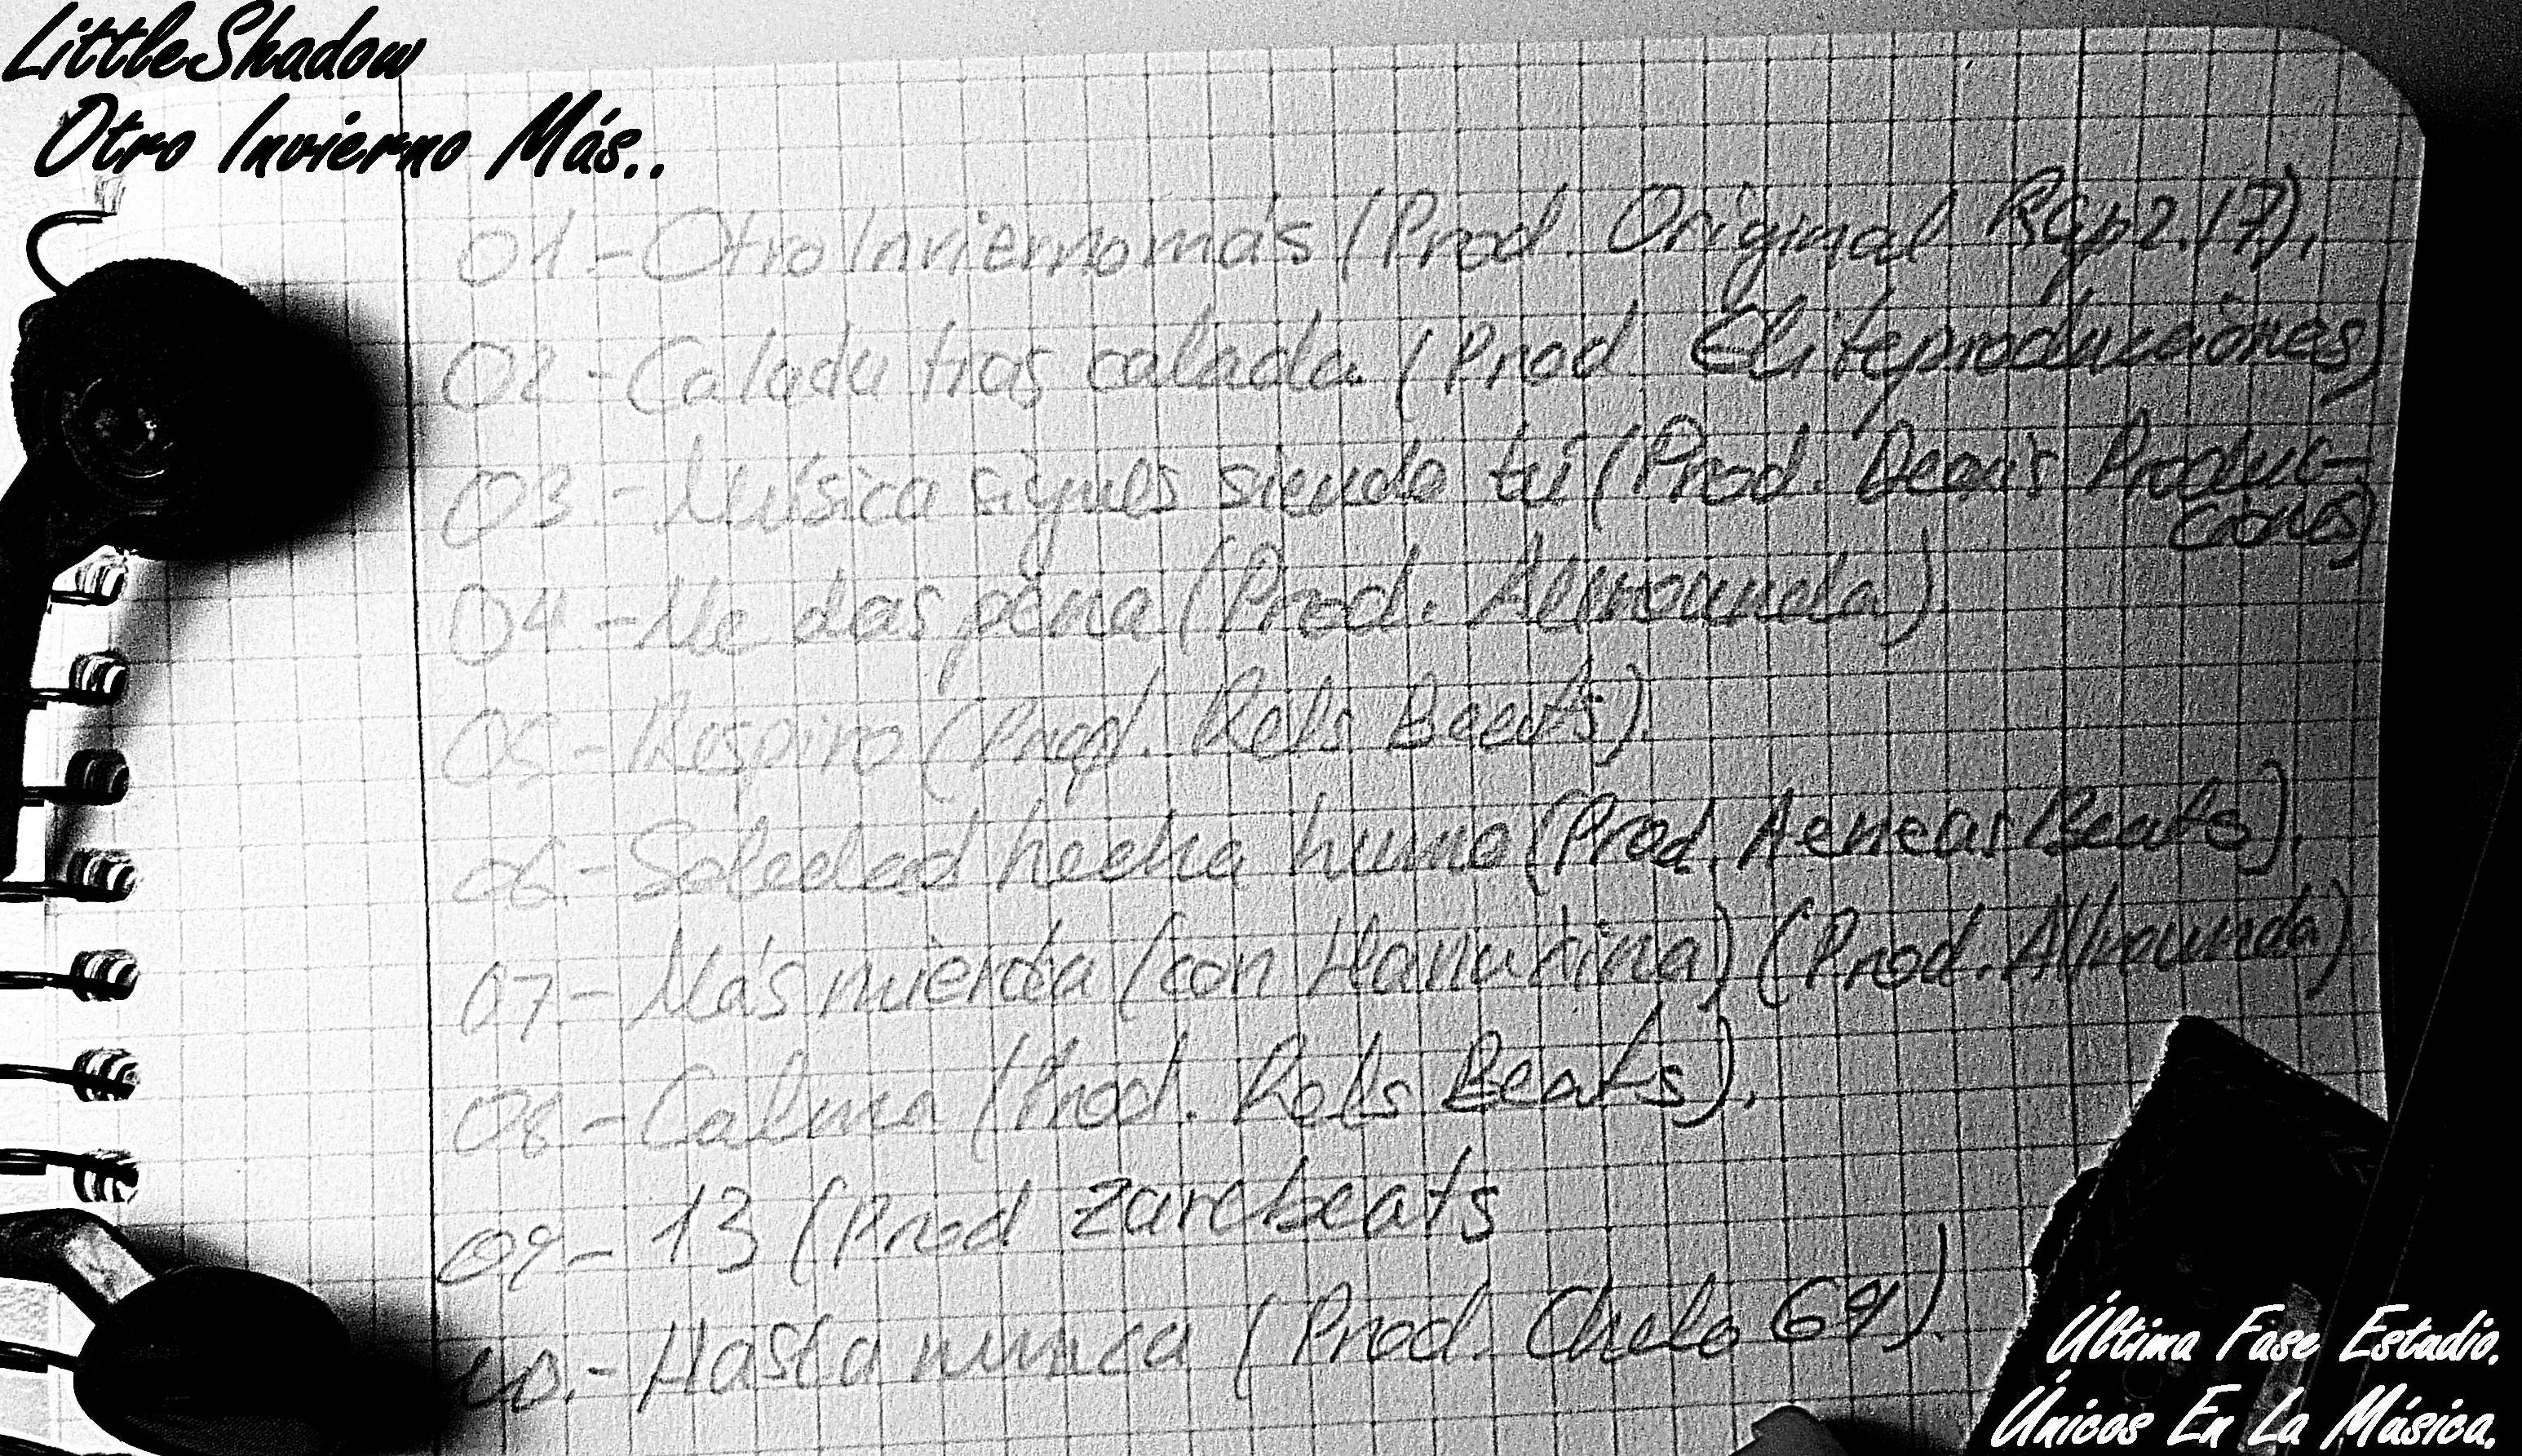 LittleShadow
Otro Invierno Más..
01.- Otro Invierno más (Prod. Original
02 - Calada tras calada. (Prod Eliteproducciones)
03 - Música sigues siendo tú (Prod. Produc-
ciones)
04 - Me das pena (Prod. Allrounda)
05 - Respiro (Prod. Rels Beats).
06.- Soledad hecha humo (Prod. Aeneas Beats).
07 - Más mierda (con (Prod. Allrounda)
08 - Calma (Prod. Rels Beats).
09 - 13 (Prod zarcbeats
10.- Hasta nunca (Prod. Chelo 69).
Última Fase Estudio.
Únicos En La Música.